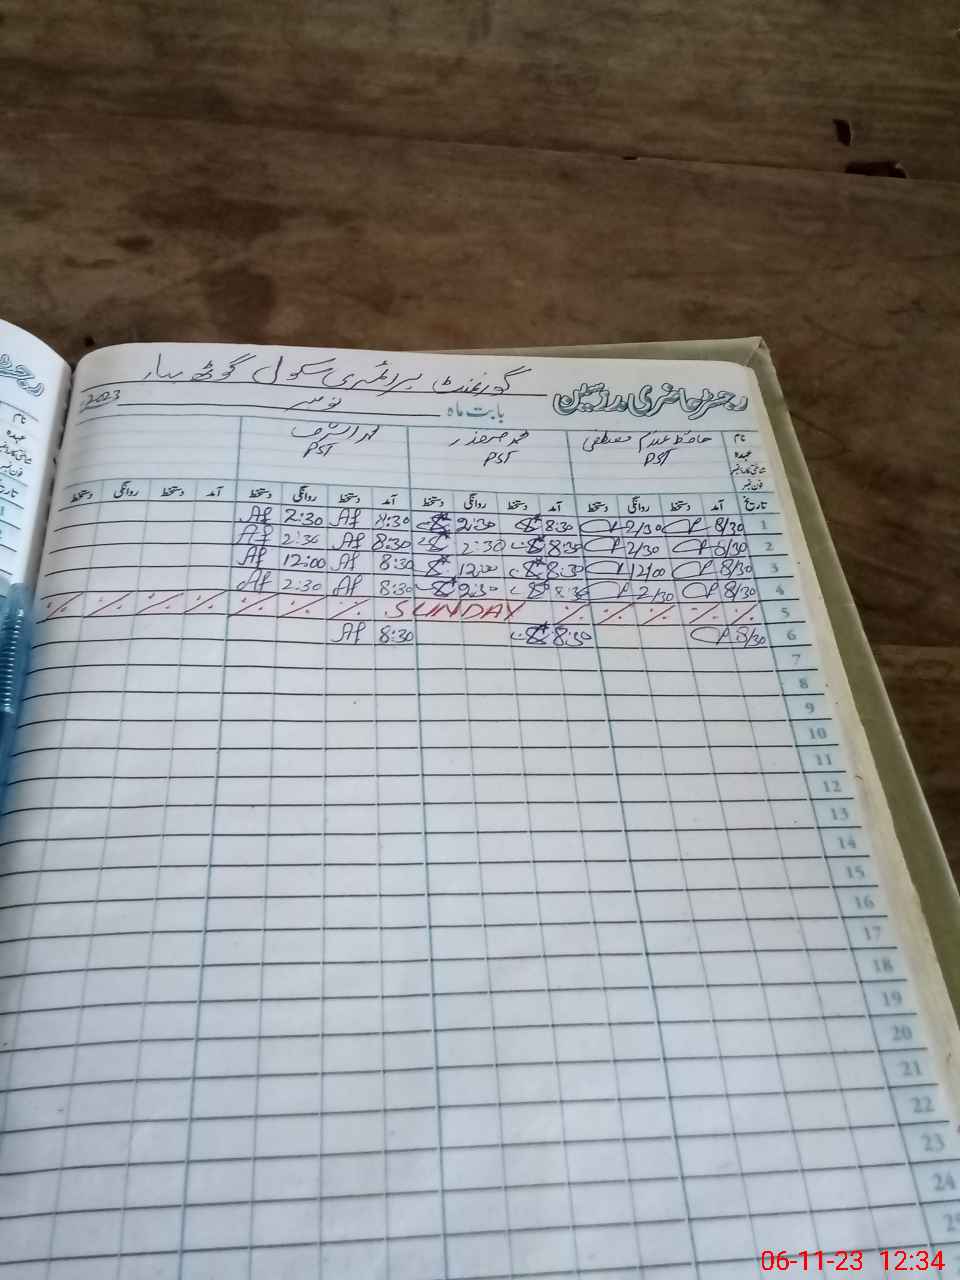 گورنمنٹ پرائمری سکول گوٹھ
رجسٹر حاضری مدرسین
بابت ماہ نومبر 2023
نام حافظ غلام مصطفیٰ محمد صفدر محمد اشرف
عہدہ PST PST PST
شناختی کارڈ نمبر
فون نمبر
تاریخ آمد دستخط روانگی دستخط آمد دستخط روانگی دستخط آمد دستخط روانگی دستخط آمد دستخط روانگی دستخط
1 8/30 2/30 8:30 2:30 8:30 Af 2:30 Af
2 8/30 2/30 8:30 2:30 8:30 Af 2:30 Af
3 8/30 12/00 8:30 12:00 8:30 Af 12:00 Af
4 8/30 2/30 8:30 2:30 8:30 Af 2:30 Af
5 SUNDAY
6 8/30 8:30 8:30 Af
7
8
9
10
11
12
13
14
15
16
17
18
19
20
21
22
23
24
25
06-11-23 12:34